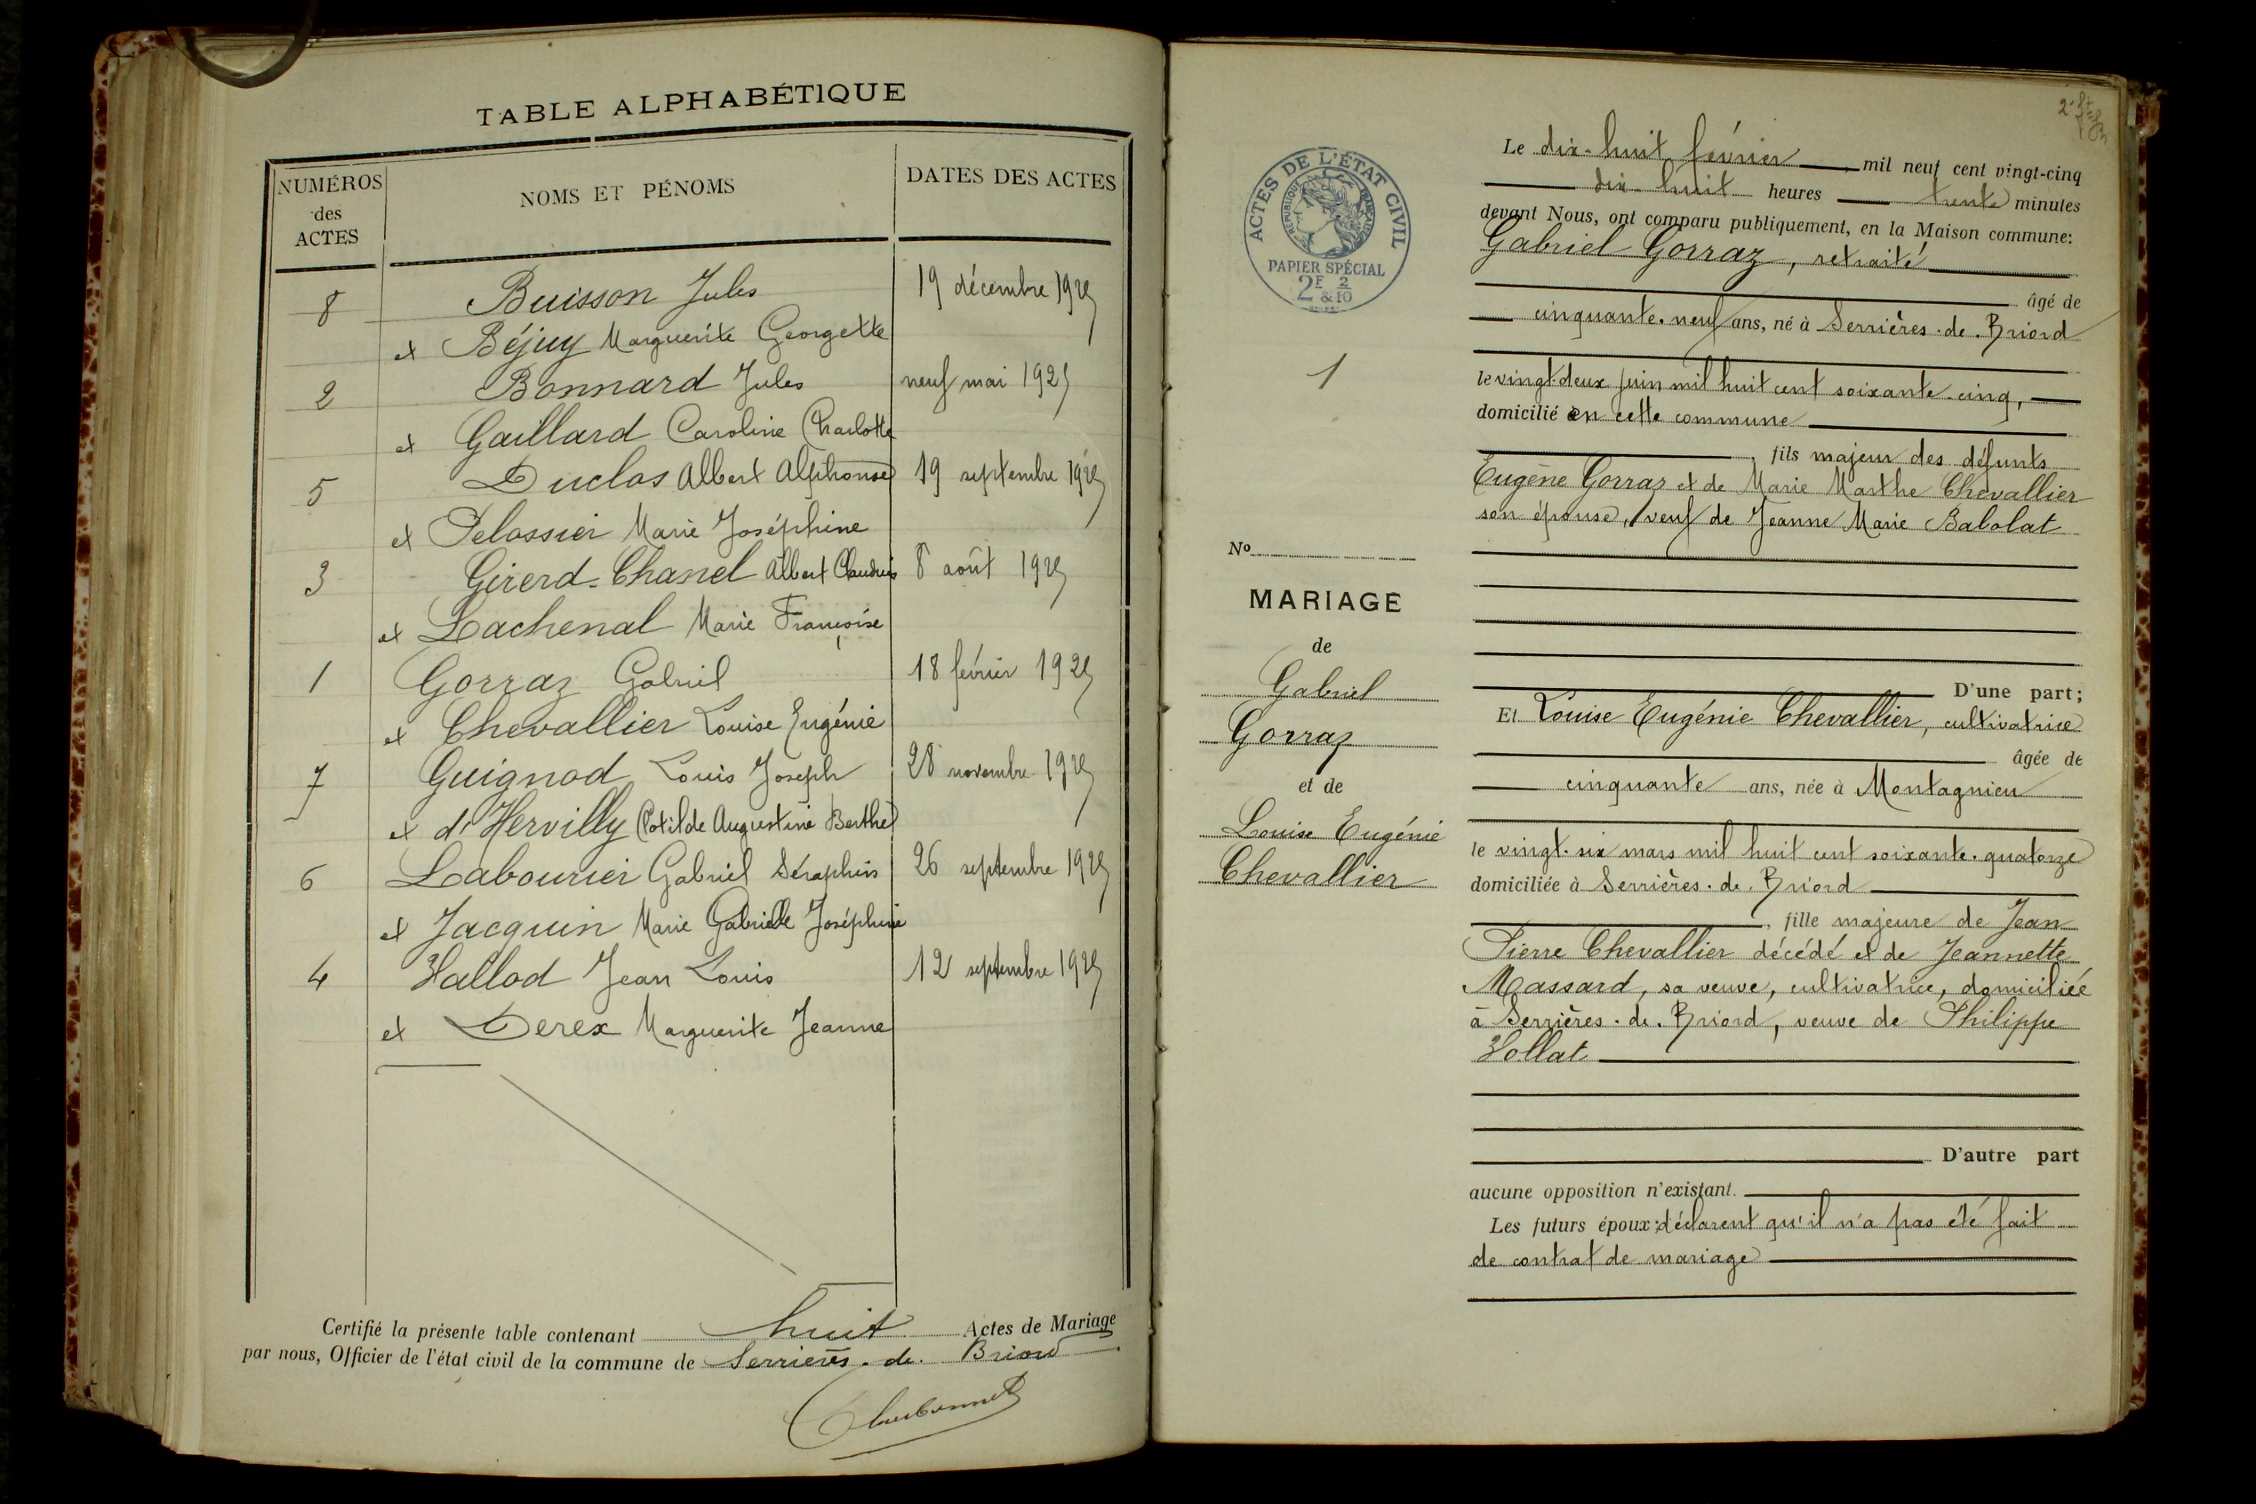 TABLE ALPHABÉTIQUE
NUMÉROS
des
ACTES
NOMS ET PÉNOMS
DATES DES ACTES
8 Buisson Jules 19 décembre 1925
et Béjuy Marguerite Georgette
2 Bonnard Jules neuf mai 1925
et Gaillard Caroline Charlotte
5 Duclos Albert Alphonse 19 septembre 1925
et Pelossier Marie Joséphine
3 Girerd-Chanel Albert Claudius 8 août 1925
et Lachenal Marie Françoise
1 Gorraz Gabriel 18 février 1925
et Chevallier Louise Eugénie
7 Guignod Louis Joseph 28 novembre 1925
et d'Hervilly Clotilde Augustine Berthe
6 Labourier Gabriel Séraphin 26 septembre 1925
et Jacquin Marie Gabrielle Joséphine
4 Vallod Jean Louis 12 septembre 1925
et Derex Marguerite Jeanne
Certifié la présente table contenant huit Actes de Mariage
par nous, Officier de l'état civil de la commune de Serrières-de-Briord
ACTES DE L'ÉTAT CIVIL
RÉPUBLIQUE FRANÇAISE
PAPIER SPÉCIAL
2F 2
& 10
1
No
MARIAGE
de
Gabriel
Gorraz
et de
Louise Eugénie
Chevallier
Le dix-huit février mil neuf cent vingt-cinq
dix-huit heures trente minutes
devant Nous, ont comparu publiquement, en la Maison commune:
Gabriel Gorraz, retraité
âgé de
cinquante-neuf ans, né à Serrières-de-Briord
le vingt-deux juin mil huit cent soixante-cinq,
domicilié en cette commune
, fils majeur des défunts
Eugène Gorraz et de Marie Marthe Chevallier
son épouse, veuf de Jeanne Marie Babolat
D'une part;
Et Louise Eugénie Chevallier, cultivatrice
âgée de
cinquante ans, née à Montagnieu
le vingt-six mars mil huit cent soixante-quatorze
domiciliée à Serrières-de-Briord
, fille majeure de Jean
Pierre Chevallier décédé et de Jeannette
Massard, sa veuve, cultivatrice, domiciliée
à Serrières-de-Briord, veuve de Philippe
Vollat
D'autre part
aucune opposition n'existant.
Les futurs époux déclarent qu'il n'a pas été fait
de contrat de mariage